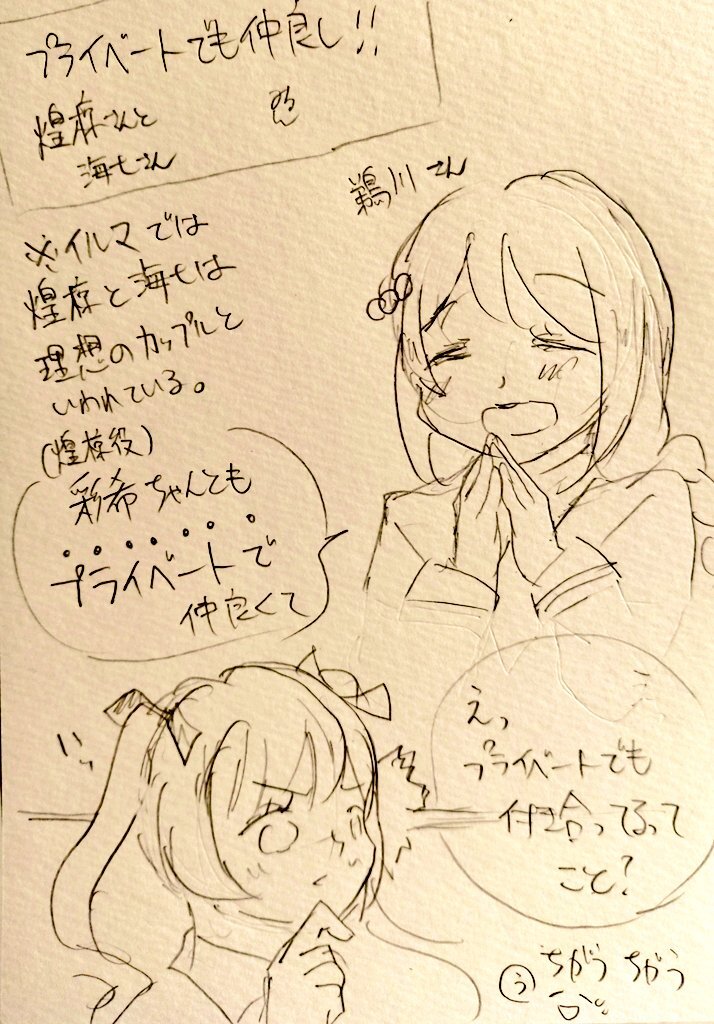 プライベートでも仲良し!!
煌椋さんと
海七さん
鵜川さん
※イルマでは
煌椋と海七は
理想のカップルと
いわれている。
(煌椋役)
彩希ちゃんとも
プライベートで
仲良くて
えっ
プライベートでも
付き合ってるって
こと?
う ちがう ちがう